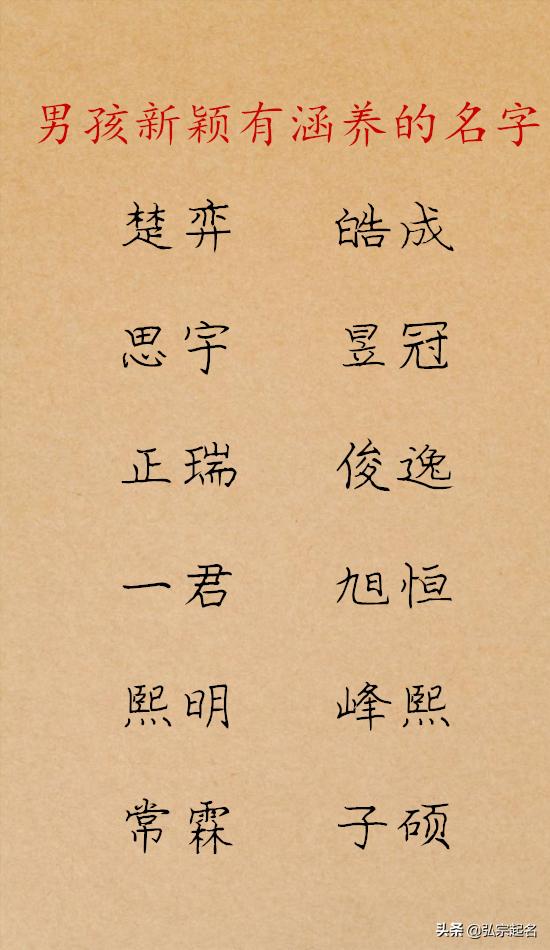 男孩新颖有涵养的名字
楚弈 皓成
思宇 昱冠
正瑞 俊逸
一君 旭恒
熙明 峰熙
常霖 子硕
头条 @弘宗起名